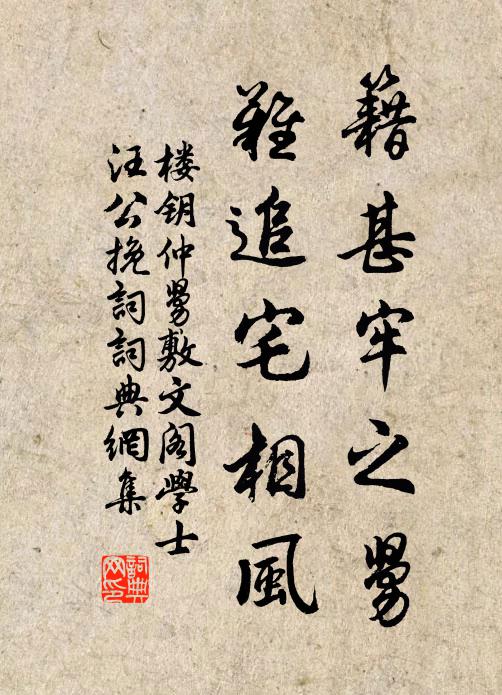 籍甚牢之舅
难追宅相风
楼钥仲舅敷文阁学士
汪公挽词词典網集
詞典網印